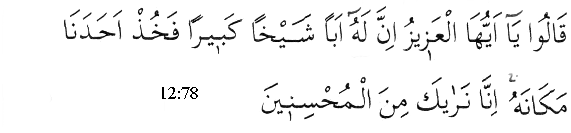 قَالُوا يَٓا اَيُّهَا الْعَزٖيزُ اِنَّ لَهُٓ اَباً شَيْخاً كَبٖيراً فَخُذْ اَحَدَنَا
مَكَانَهُ اِنَّا نَرٰيكَ مِنَ الْمُحْسِنٖينَ 12:78